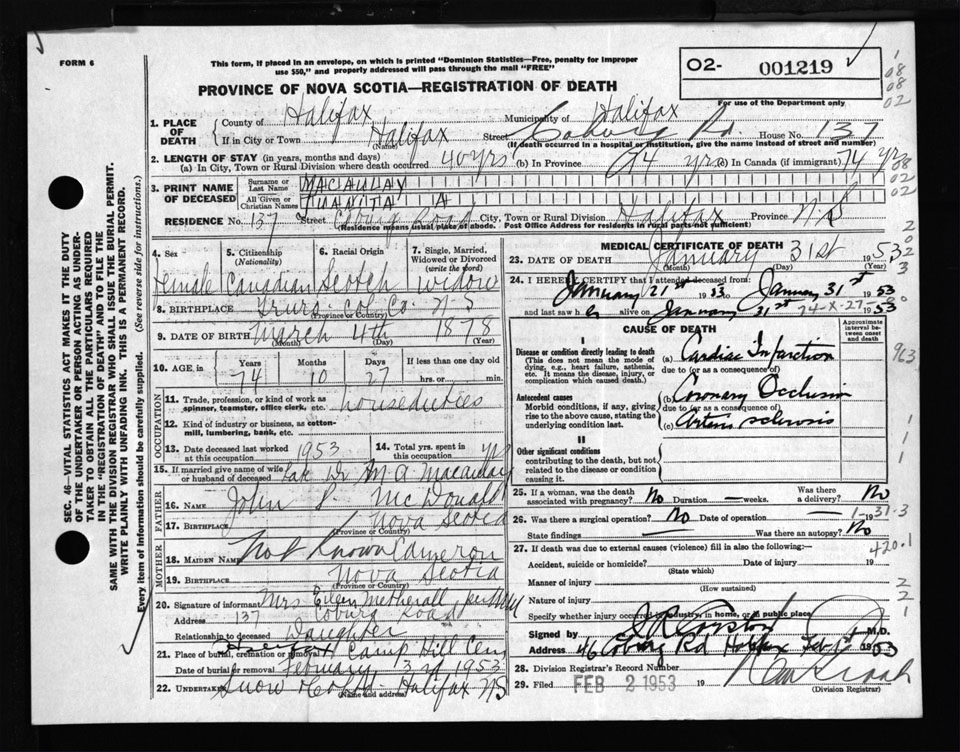 FORM 6
This form, if placed in an envelope, on which is printed "Dominion Statistics—Free, penalty for improper
use $50," and properly addressed will pass through the mail "FREE"
O2- 001219
For use of the Department only
PROVINCE OF NOVA SCOTIA—REGISTRATION OF DEATH
1. PLACE OF DEATH
County of Halifax Municipality of Halifax
If in City or Town Halifax (Name) Street Coburg Rd. House No. 137
(If death occurred in a hospital or institution, give the name instead of street and number)
2. LENGTH OF STAY (in years, months and days)
(a) In City, Town or Rural Division where death occurred 40 yrs (b) In Province 74 yrs (c) In Canada (if immigrant) 74 yr
3. PRINT NAME OF DECEASED
Surname or Last Name MACAULAY
All Given or Christian Names JUANITA A
RESIDENCE No. 137 Street Coburg Road City, Town or Rural Division Halifax Province N.S
(Residence means usual place of abode. Post Office Address for residents in rural parts not sufficient)
4. Sex Female
5. Citizenship (Nationality) Canadian
6. Racial Origin Scotch
7. Single, Married, Widowed or Divorced (write the word) widow
8. BIRTHPLACE Truro Col Co. N-S
(Province or Country)
9. DATE OF BIRTH March 4th 1878
(Month) (Day) (Year)
10. AGE, in Years 74 Months 10 Days 27 If less than one day old
hrs. or min.
OCCUPATION
11. Trade, profession, or kind of work as spinner, teamster, office clerk, etc. houseduties
12. Kind of industry or business, as cotton-mill, lumbering, bank, etc.
13. Date deceased last worked at this occupation 1953
14. Total yrs. spent in this occupation
15. If married give name of wife or husband of deceased Late Dr M A Macaulay
FATHER
16. NAME John S McDonald
17. BIRTHPLACE Nova Scotia
(Province or Country)
MOTHER
18. MAIDEN NAME Not Known Cameron
19. BIRTHPLACE Nova Scotia
(Province or Country)
20. Signature of informant Mrs Eileen Metherall per
Address 137 Coburg Road
Relationship to deceased Daughter
21. Place of burial, cremation or removal Halifax Camp Hill Cem
Date of burial or removal February 3rd 1953
22. UNDERTAKER Snow Co Ltd Halifax NS
(Name and address)
MEDICAL CERTIFICATE OF DEATH
23. DATE OF DEATH January 31st 1953
(Month) (Day) (Year)
24. I HEREBY CERTIFY that I attended deceased from
January 21st 1953 January 31st 1953
and last saw her alive on January 31st 1953
74-X-27
CAUSE OF DEATH
Approximate interval between onset and death
I
Disease or condition directly leading to death
(This does not mean the mode of dying, e.g., heart failure, asthenia, etc. It means the disease, injury, or complication which caused death.)
(a) Cardiac Infarction
due to (or as a consequence of)
Antecedent causes
Morbid conditions, if any, giving rise to the above cause, stating the underlying condition last.
(b) Coronary Occlusion
due to (or as a consequence of)
(c) Arterio sclerosis
II
Other significant conditions
contributing to the death, but not related to the disease or condition causing it.
25. If a woman, was the death associated with pregnancy? No Duration — weeks. Was there a delivery? No
26. Was there a surgical operation? No Date of operation — 19
State findings — Was there an autopsy? No
27. If death was due to external causes (violence) fill in also the following:—
Accident, suicide or homicide? Date of injury 19
(State which)
Manner of injury
(How sustained)
Nature of injury
Specify whether injury occurred in industry, in home, or in public place
Signed by M.D.
Address 46 Coburg Rd Halifax Feb 1st 1953
28. Division Registrar's Record Number
29. Filed FEB 2 1953 19
(Division Registrar)
963
420.1
SEC. 46—VITAL STATISTICS ACT MAKES IT THE DUTY
OF THE UNDERTAKER OR PERSON ACTING AS UNDER-
TAKER TO OBTAIN ALL THE PARTICULARS REQUIRED
IN THE "REGISTRATION OF DEATH" AND TO FILE THE
SAME WITH THE DIVISION REGISTRAR WHO SHALL ISSUE THE BURIAL PERMIT.
WRITE PLAINLY WITH UNFADING INK. THIS IS A PERMANENT RECORD.
Every item of information should be carefully supplied. (See reverse side for instructions.)